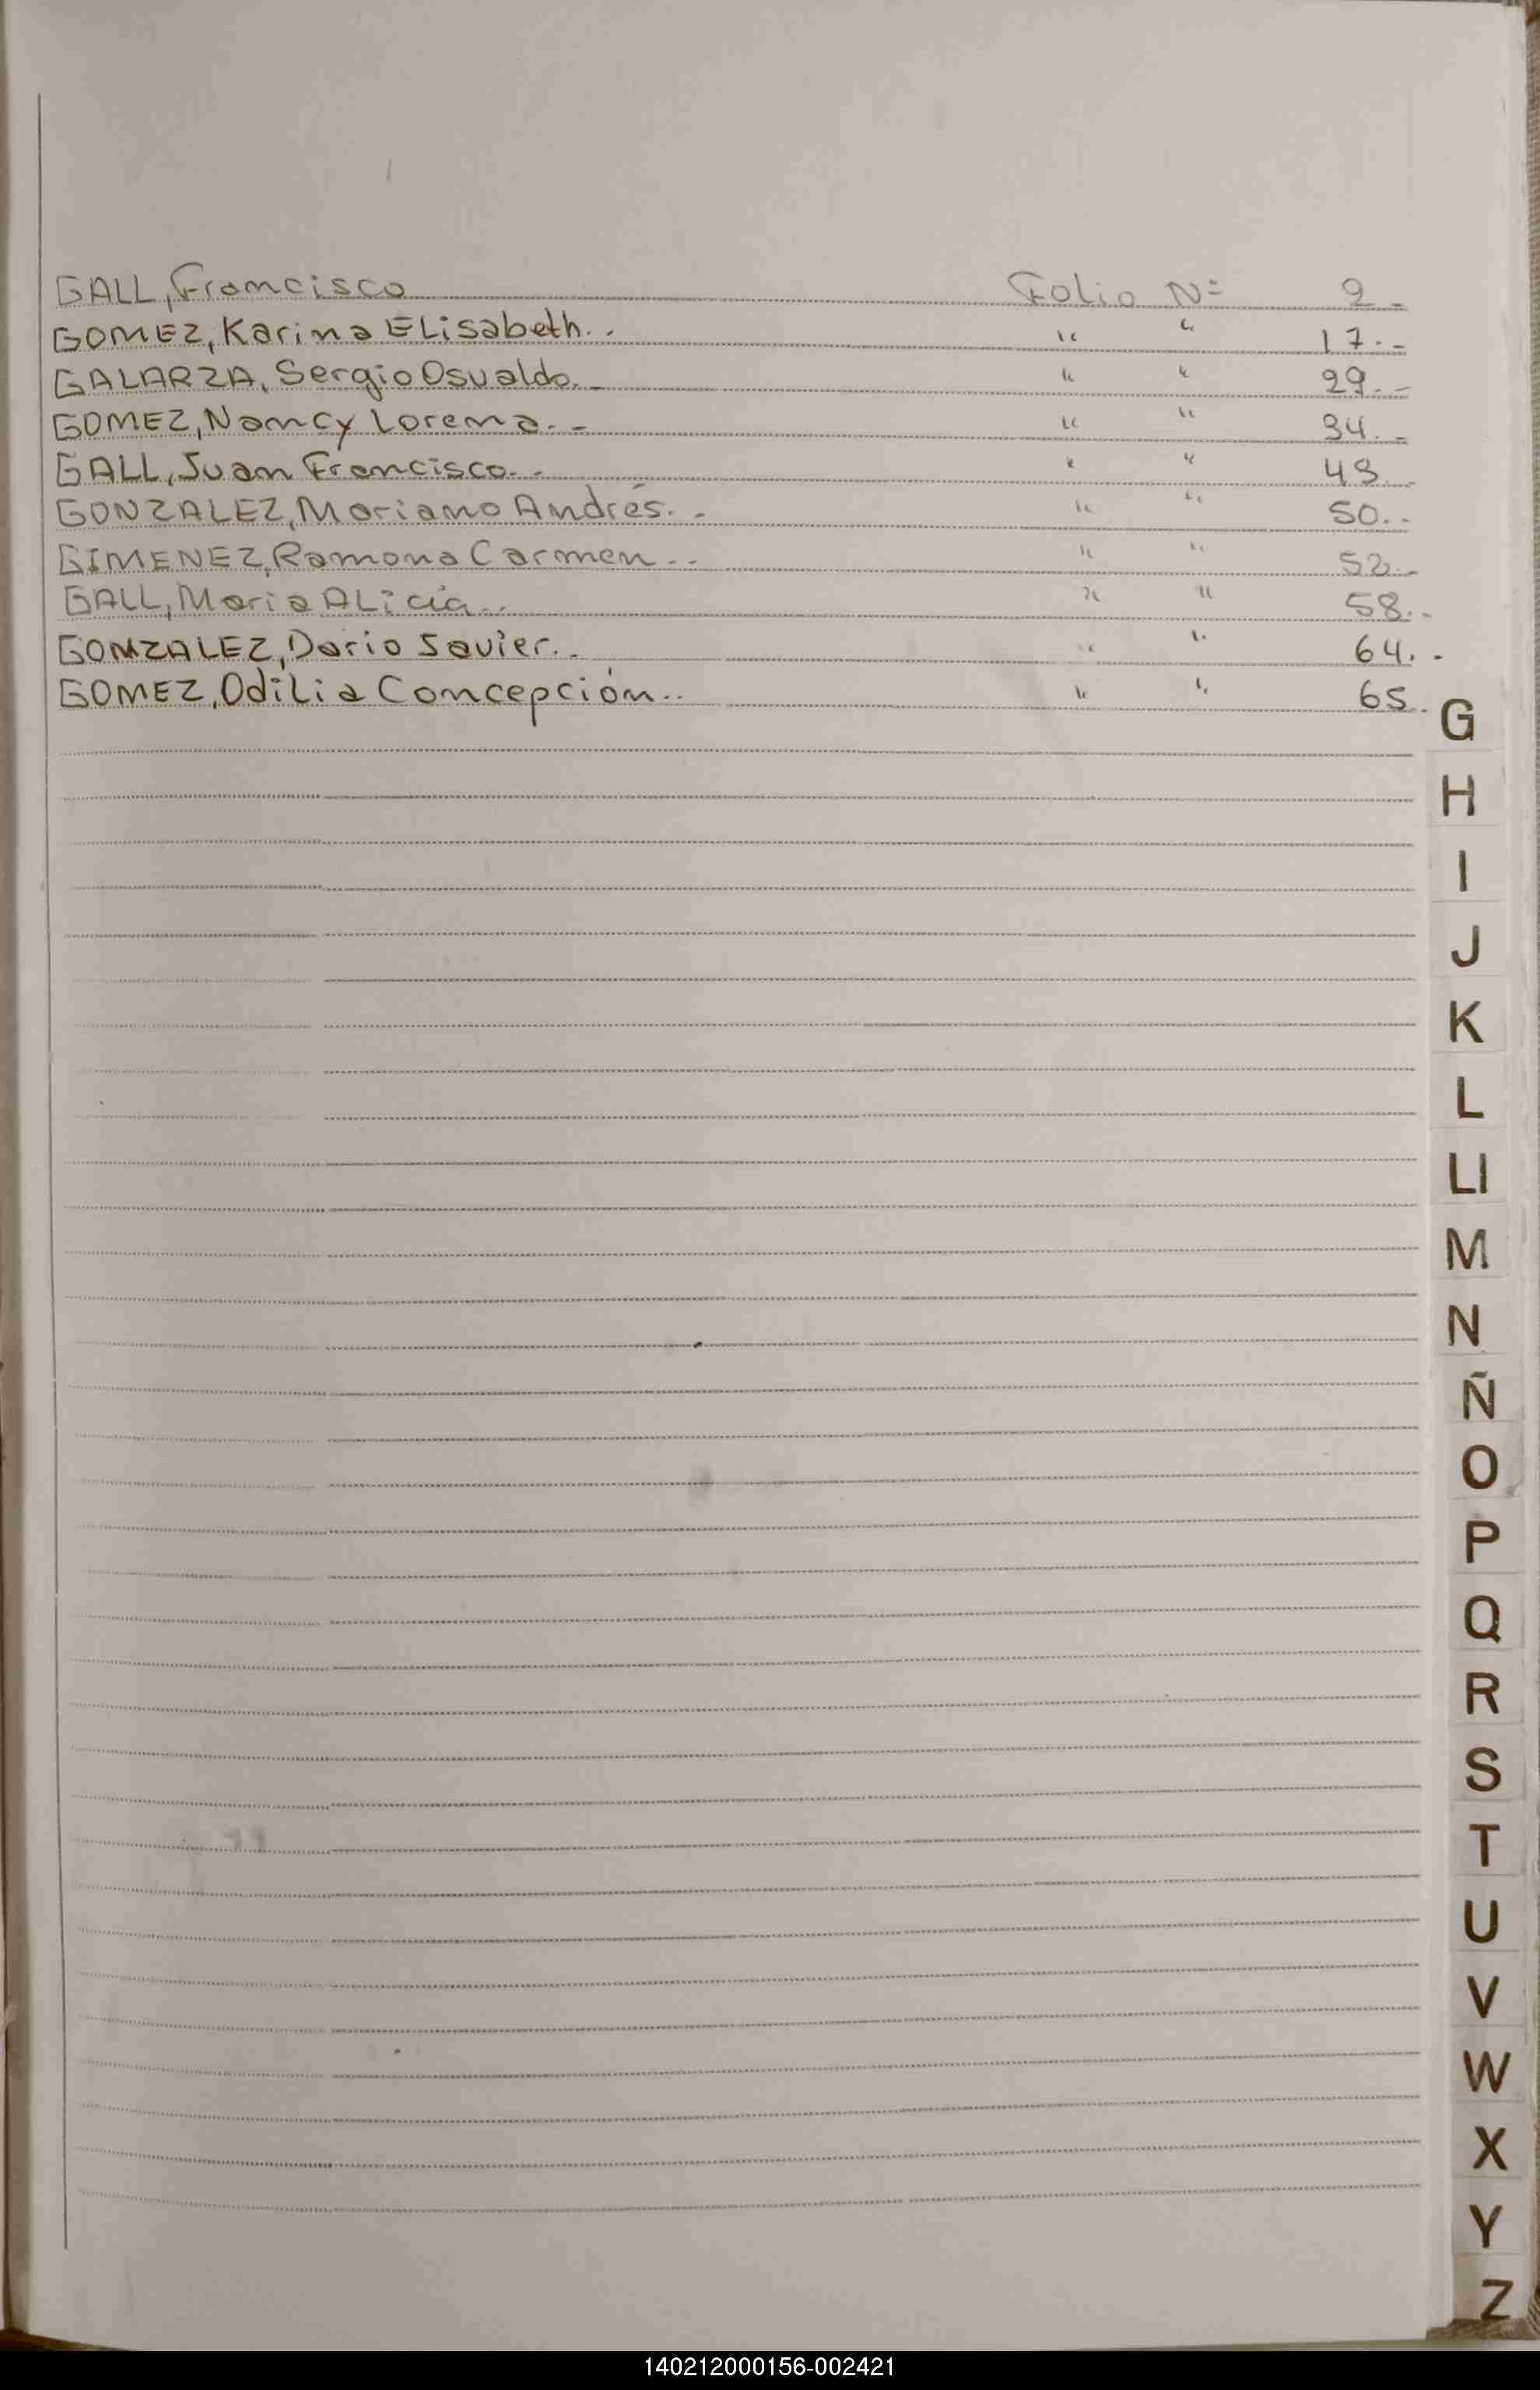 GALL, Francisco Folio Nº 2 -
GOMEZ, Karina Elisabeth.. " " 17. -
GALARZA, Sergio Osvaldo. - " " 29. -
GOMEZ, Nancy Lorena. - " " 34. -
GALL, Juan Francisco. - " " 49. -
GONZALEZ, Mariano Andrés. - " " 50. -
GIMENEZ, Ramona Carmen. - " " 52. -
GALL, Maria Alicia. - " " 58. -
GONZALEZ, Dario Javier. - " " 64. -
GOMEZ, Odilia Concepción. - " " 65. -
G
H
I
J
K
L
Ll
M
N
Ñ
O
P
Q
R
S
T
U
V
W
X
Y
Z
140212000156-002421